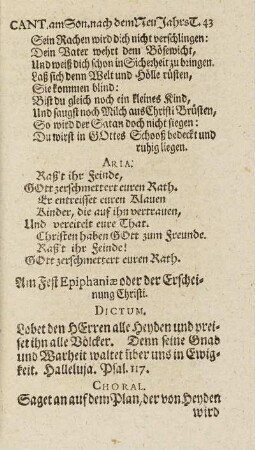 CANT. am Son. nach dem Neu Jahrs T. 43
Sein Rachen wird dich nicht verschlingen:
Dein Vater wehrt dem Bösewicht,
Und weiß dich schon in Sicherheit zu bringen.
Laß sich denn Welt und Hölle rüsten,
Sie kommen blind:
Bist du gleich noch ein kleines Kind,
Und saugst noch Milch aus Christi Brüsten,
So wird der Satan doch nicht siegen:
Du wirst in GOttes Schooß bedeckt und
ruhig liegen.
ARIA.
Raß't ihr Feinde,
GOtt zerschmettert euren Rath.
Er entreisset euren Klauen
Kinder, die auf ihn vertrauen,
Und vereitelt eure That.
Christen haben GOtt zum Freunde.
Raß't ihr Feinde!
GOtt zerschmettert euren Rath.
Am Fest Epiphaniæ oder der Erschei-
nung Christi.
DICTUM.
Lobet den HErren alle Heyden und prei-
set ihn alle Völcker. Denn seine Gnad
und Warheit waltet über uns in Ewig-
keit. Halleluja. Psal. 117.
CHORAL.
Saget an auf dem Plan, der von Heyden
wird